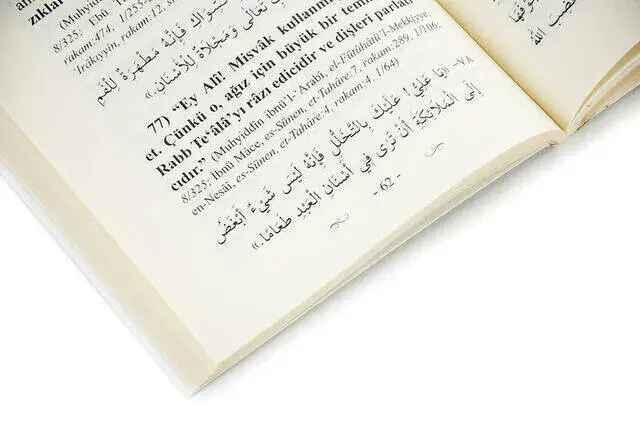 zıklar
rakam:474, 1/255-
'Irâkıyyîn, rakam:12, s
8/325; Ebû
تَعَالَى وَمَجْلَاةٌ لِلْأَسْنَانِ.»
فَإِنَّهُ مَطْهَرَةٌ لِلْفَمِ
77) “Ey Ali! Misvâk kullanma
et. Çünkü o, ağız için büyük bir temi
Rabb Te‘âlâ’yı râzı edicidir ve dişleri parlat
cıdır.” (Muhyiddîn ibnü’l-‘Arabî, el-Fütûhâtü’l-Mekkiyye,
8/325; İbnü Mâce, es-Sünen, et-Tahâre:7, rakam:289, 1/106;
en-Nesâî, es-Sünen, et-Tahâre:4, rakam:4, 1/64)
٧٨- «يَا عَلِيُّ! عَلَيْكَ بِالتَّخَلُّلِ فَإِنَّهُ لَيْسَ شَيْءٌ أَبْغَضُ
إِلَى الْمَلَائِكَةِ أَنْ تَرَى فِي أَسْنَانِ الْعَبْدِ طَعَامًا.»
- 62 -